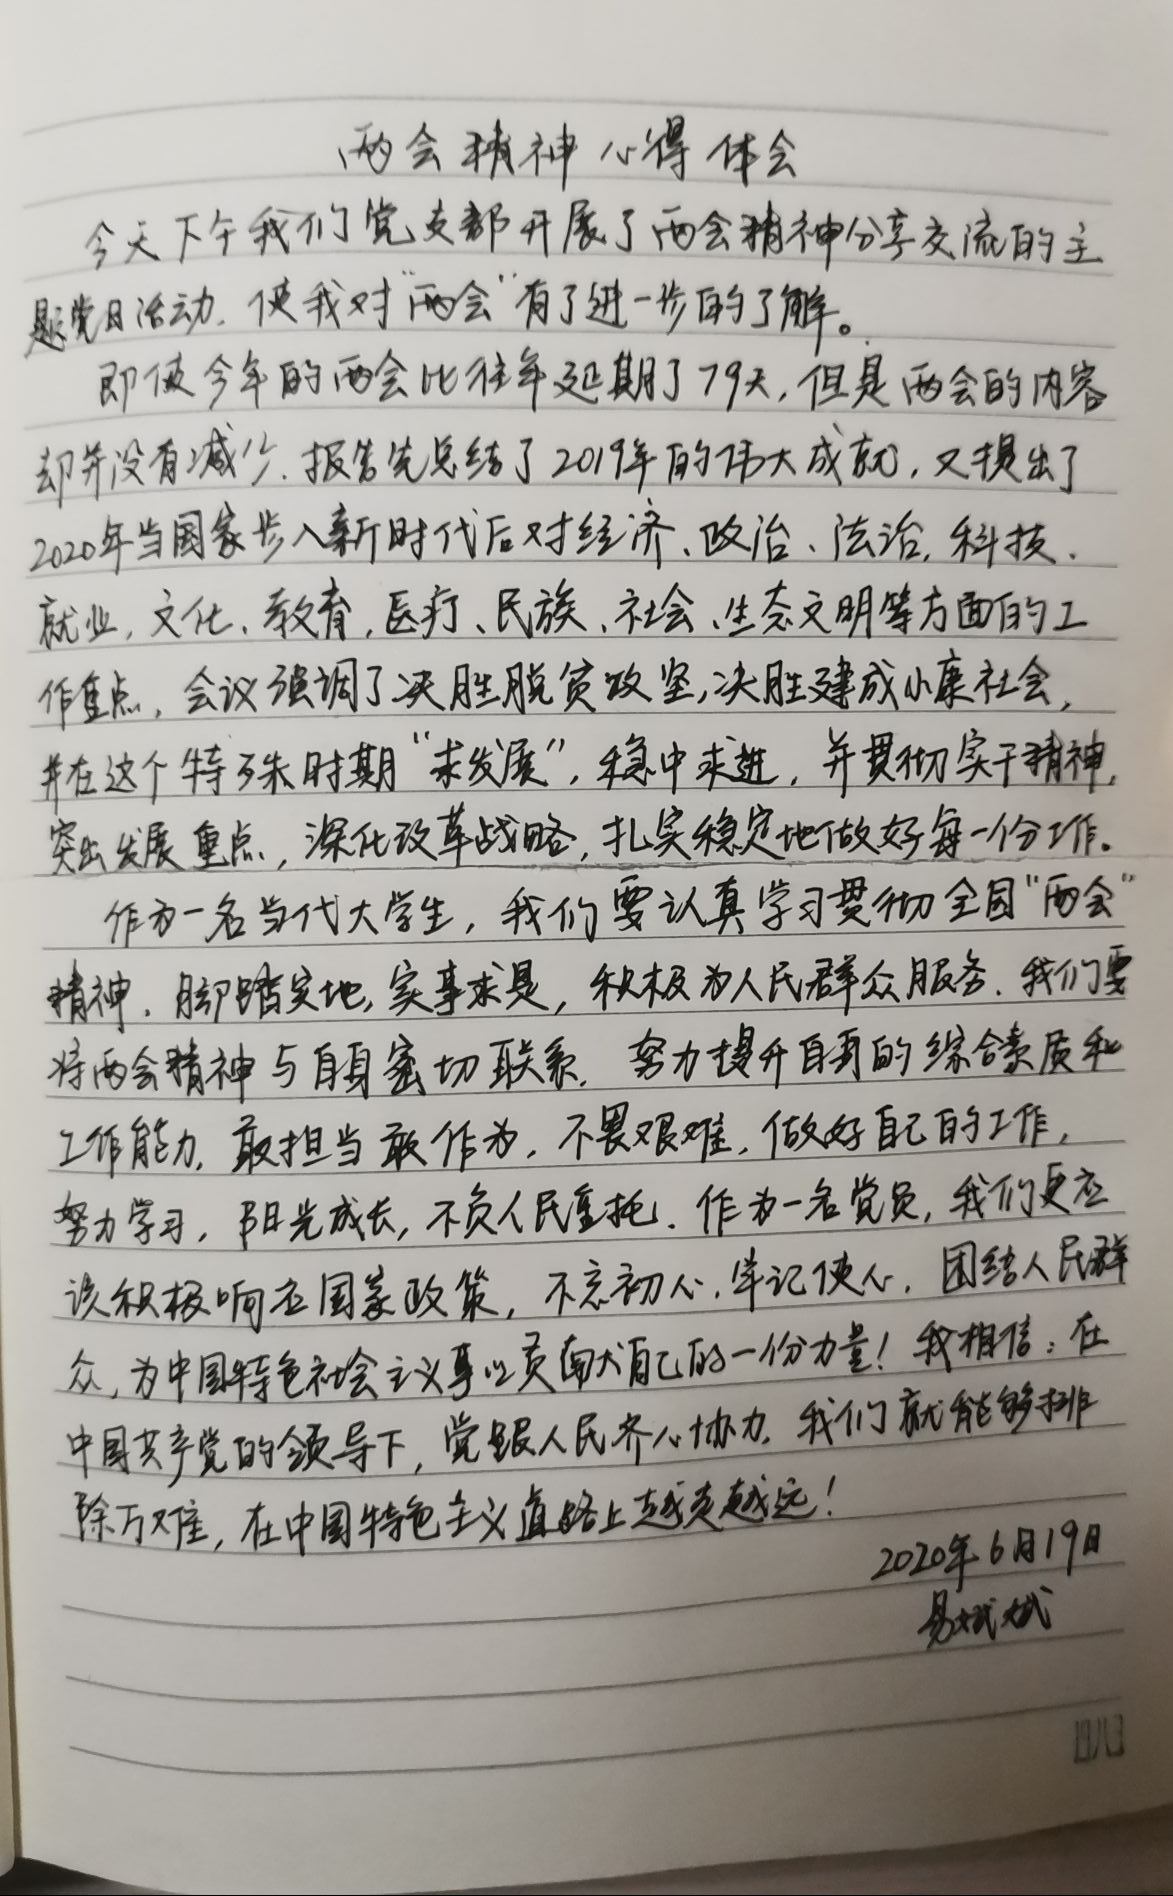 两会精神心得体会
今天下午我们党支部开展了两会精神分享交流的主
题党日活动，使我对“两会”有了进一步的了解。
即使今年的两会比往年延期了79天，但是两会的内容
却并没有减少，报告先总结了2019年的伟大成就，又提出了
2020年当国家步入新时代后对经济、政治、法治、科技、
就业、文化、教育、医疗、民族、社会、生态文明等方面的工
作重点，会议强调了决胜脱贫攻坚，决胜建成小康社会，
并在这个特殊时期“求发展”，稳中求进，并贯彻实干精神，
突出发展重点，深化改革战略，扎实稳定地做好每一份工作。
作为一名当代大学生，我们要认真学习贯彻全国“两会”
精神，脚踏实地，实事求是，积极为人民群众服务，我们要
将两会精神与自身密切联系，努力提升自身的综合素质和
工作能力，敢担当敢作为，不畏艰难，做好自己的工作，
努力学习，阳光成长，不负人民重托。作为一名党员，我们更应
该积极响应国家政策，不忘初心，牢记使心，团结人民群
众，为中国特色社会主义事业贡献自己的一份力量！我相信：在
中国共产党的领导下，党跟人民齐心协力，我们就能够排
除万难，在中国特色主义道路上越走越远！
2020年6月19日
易斌斌